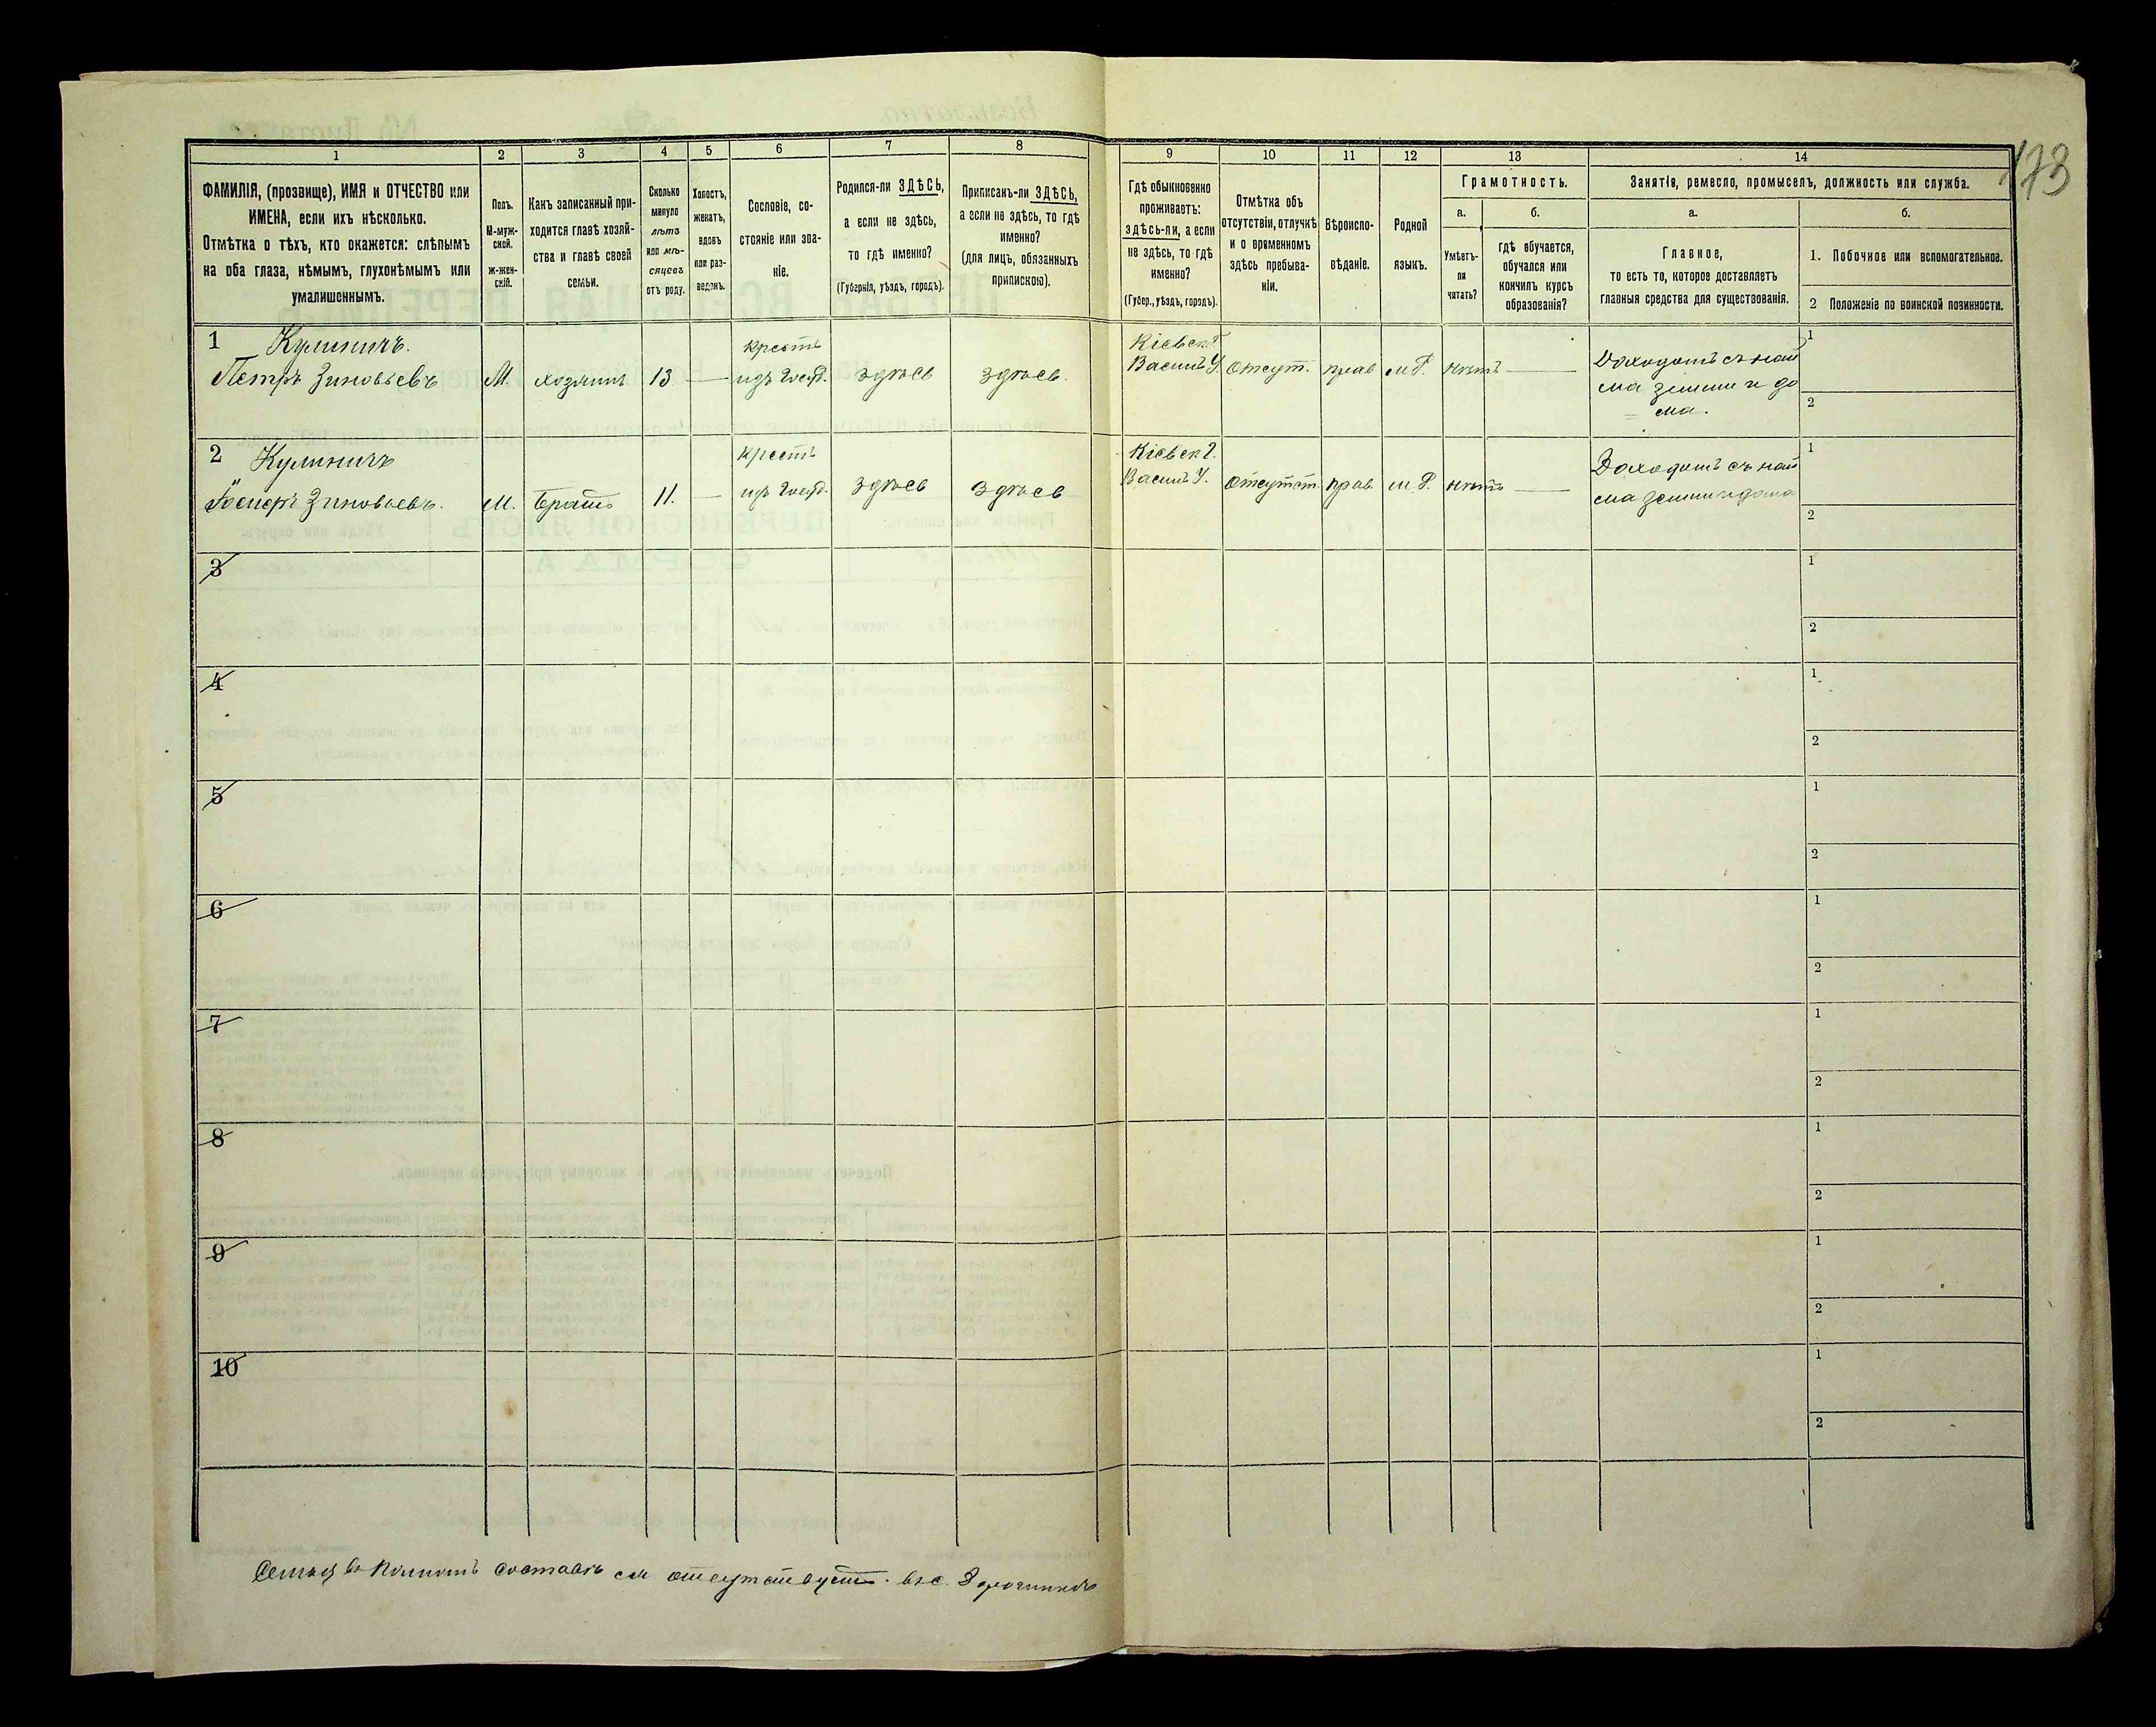 173
1 2 3 4 5 6 7 8 9 10 11 12 13 14
ФАМИЛІЯ, (прозвище), ИМЯ и ОТЧЕСТВО или
ИМЕНА, если ихъ нѣсколько.
Отмѣтка о тѣхъ, кто окажется: слѣпымъ
на оба глаза, нѣмымъ, глухонѣмымъ или
умалишеннымъ.
Полъ.
М-муж-
ской.
ж-жен-
скій.
Какъ записанный при-
ходится главѣ хозяй-
ства и главѣ своей
семьи.
Сколько
минуло
лѣтъ
или мѣ-
сяцевъ
отъ роду.
Холостъ,
женатъ,
вдовъ
или раз-
веденъ.
Сословіе, со-
стояніе или зва-
ніе.
Родился-ли ЗДѢСЬ,
а если не здѣсь,
то гдѣ именно?
(Губернія, уѣздъ, городъ).
Приписанъ-ли ЗДѢСЬ,
а если не здѣсь, то гдѣ
именно?
(для лицъ, обязанныхъ
припискою).
Гдѣ обыкновенно
проживаетъ:
здѣсь-ли, а если
не здѣсь, то гдѣ
именно?
(Губер., уѣздъ, городъ).
Отмѣтка объ
отсутствіи, отлучкѣ
и о временномъ
здѣсь пребыва-
ніи.
Вѣроиспо-
вѣданіе.
Родной
языкъ.
Грамотность.
а.
Умѣетъ-
ли
читать?
б.
гдѣ обучается,
обучался или
кончилъ курсъ
образованія?
Занятіе, ремесло, промыселъ, должность или служба.
а.
Главное,
то есть то, которое доставляетъ
главныя средства для существованія.
б.
1. Побочное или вспомогательное.
2 Положеніе по воинской повинности.
1 Кулиничъ.
Петръ Зиновьевъ
М
хозяинъ
13
—
крест
изъ
здѣсь
здѣсь.
Кіевск Г
Васил У.
Отсут.
прав
м.Р.
нѣтъ
—
Доходомъ съ най
ма земли и до
ма.
1
2
2 Кулиничъ
Зиновьевъ.
М.
братъ
11.
—
крест
изъ
здѣсь
здѣсь
Кіевск Г.
Васил У.
Отсутст.
прав.
м.Р.
нѣтъ
—
Доходомъ съ най
ма земли и дома
1
2
3
1
2
4
1
2
5
1
2
6
1
2
7
1
2
8
1
2
9
1
2
10
1
2
Семья въ полномъ составѣ отсутствуетъ. въ с.